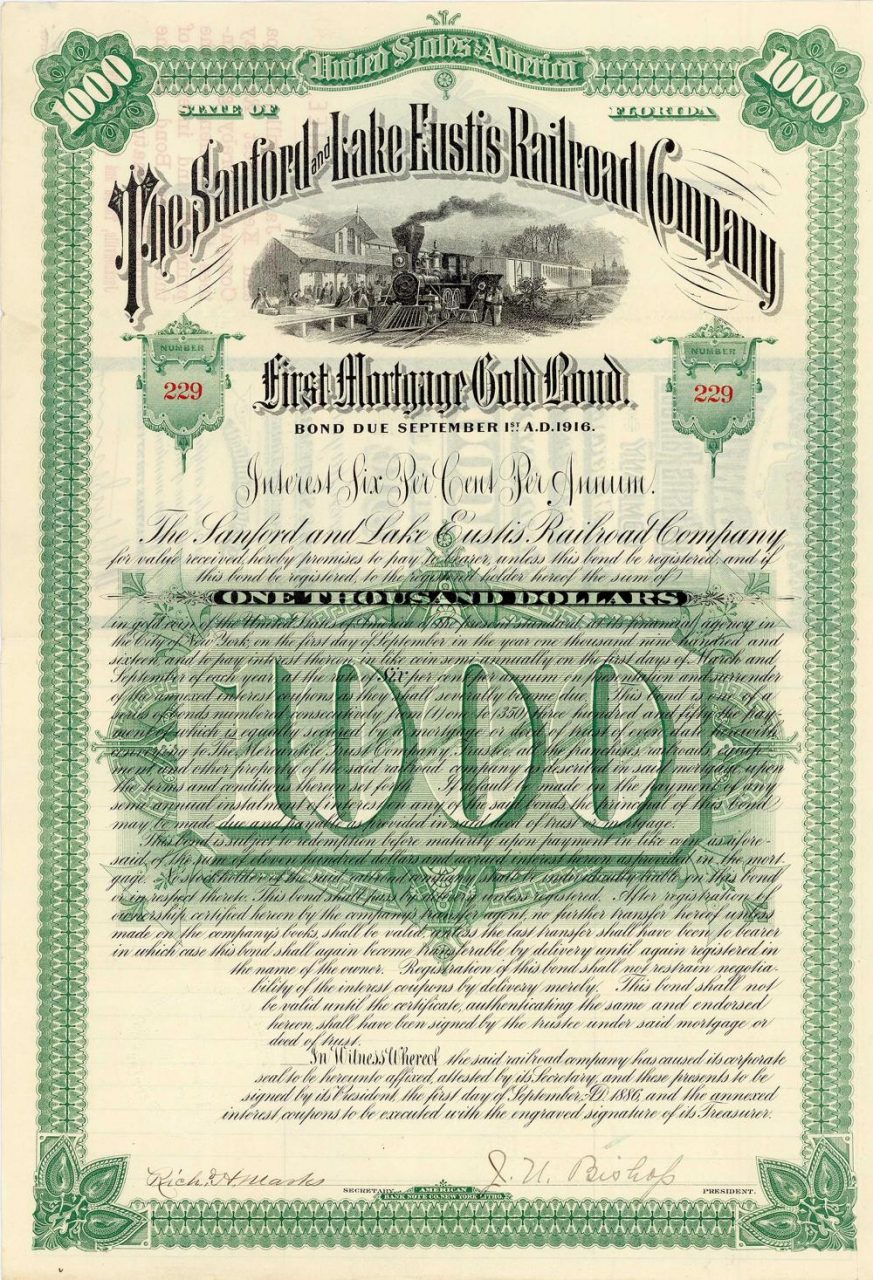 United States of America
1000
1000
STATE OF FLORIDA
The Sanford and Lake Eustis Railroad Company
NUMBER
229
NUMBER
229
First Mortgage Gold Bond.
BOND DUE SEPTEMBER 1ST A.D. 1916.
Interest Six Per Cent Per Annum.
The Sanford and Lake Eustis Railroad Company
for value received, hereby promises to pay to bearer, unless this bond be registered, and if
this bond be registered, to the registered holder hereof the sum of
ONE THOUSAND DOLLARS
in gold coin of the United States of America of the present standard at its financial agency in
the City of New York, on the first day of September in the year one thousand nine hundred and
sixteen, and to pay interest thereon in like coin semi-annually on the first days of March and
September of each year at the rate of six per cent per annum on presentation and surrender
of the annexed interest coupons as they shall severally become due. This bond is one of a
series of bonds numbered consecutively from (1) one to (350) three hundred and fifty the pay-
ment of which is equally secured by a mortgage or deed of trust of even date herewith
conveying to The Mercantile Trust Company, Trustee, all the franchises, railroads, equip-
ment and other property of the said railroad company as described in said mortgage upon
the terms and conditions therein set forth. If default be made in the payment of any
semi annual instalment of interest on any of the said bonds the principal of this bond
may be made due and payable as provided in said deed of trust or mortgage.
This bond is subject to redemption before maturity upon payment in like coin as afore-
said, of the sum of eleven hundred dollars and accrued interest hereon as provided in the mort-
gage. No stockholder of the said railroad company shall be individually liable on this bond
or in respect thereto. This bond shall pass by delivery unless registered. After registration of
ownership certified hereon by the company's transfer agent, no further transfer hereof unless
made on the company's books, shall be valid, unless the last transfer shall have been to bearer
in which case this bond shall again become transferable by delivery until again registered in
the name of the owner. Registration of this bond shall not restrain negotia-
bility of the interest coupons by delivery merely. This bond shall not
be valid until the certificate, authenticating the same and endorsed
hereon, shall have been signed by the trustee under said mortgage or
deed of trust.
In Witness Whereof the said railroad company has caused its corporate
seal to be hereunto affixed, attested by its Secretary, and these presents to be
signed by its President, the first day of September, A.D. 1886, and the annexed
interest coupons to be executed with the engraved signature of its Treasurer.
1000
Rich. H. Marks
SECRETARY
AMERICAN
BANK NOTE CO. NEW YORK LITHO.
J. U. Bishop
PRESIDENT.